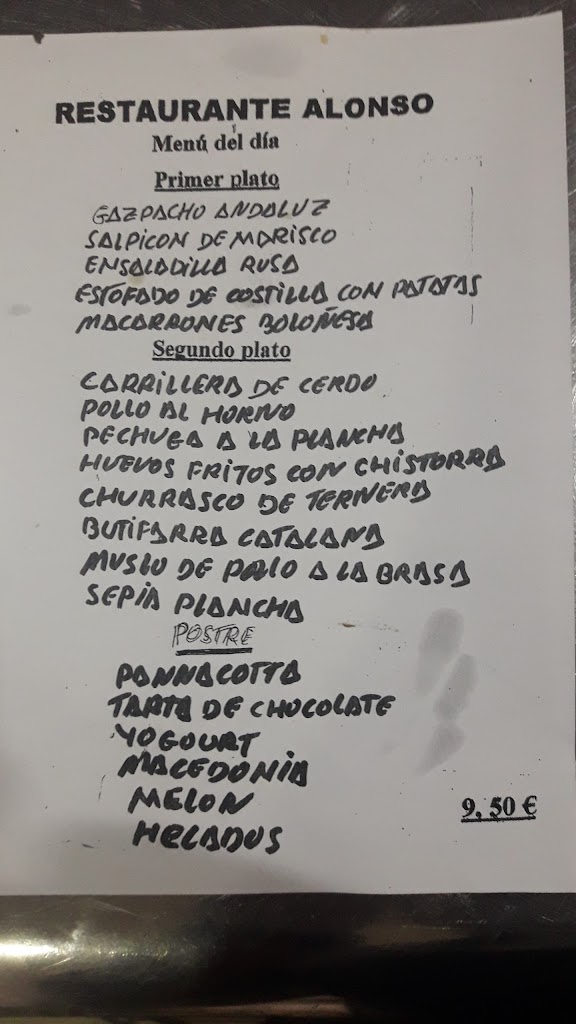 RESTAURANTE ALONSO
Menú del día
Primer plato
GAZPACHO ANDALUZ
SALPICON DE MARISCO
ENSALADILLA RUSA
ESTOFADO DE COSTILLA CON PATATAS
MACARRONES BOLOÑESA
Segundo plato
CARRILLERA DE CERDO
POLLO AL HORNO
PECHUGA A LA PLANCHA
HUEVOS FRITOS CON CHISTORRA
CHURRASCO DE TERNERA
BUTIFARRA CATALANA
MUSLO DE POLLO A LA BRASA
SEPIA PLANCHA
POSTRE
PANNACOTTA
TARTA DE CHOCOLATE
YOGOURT
MACEDONIA
MELON
HELADOS
9, 50 €